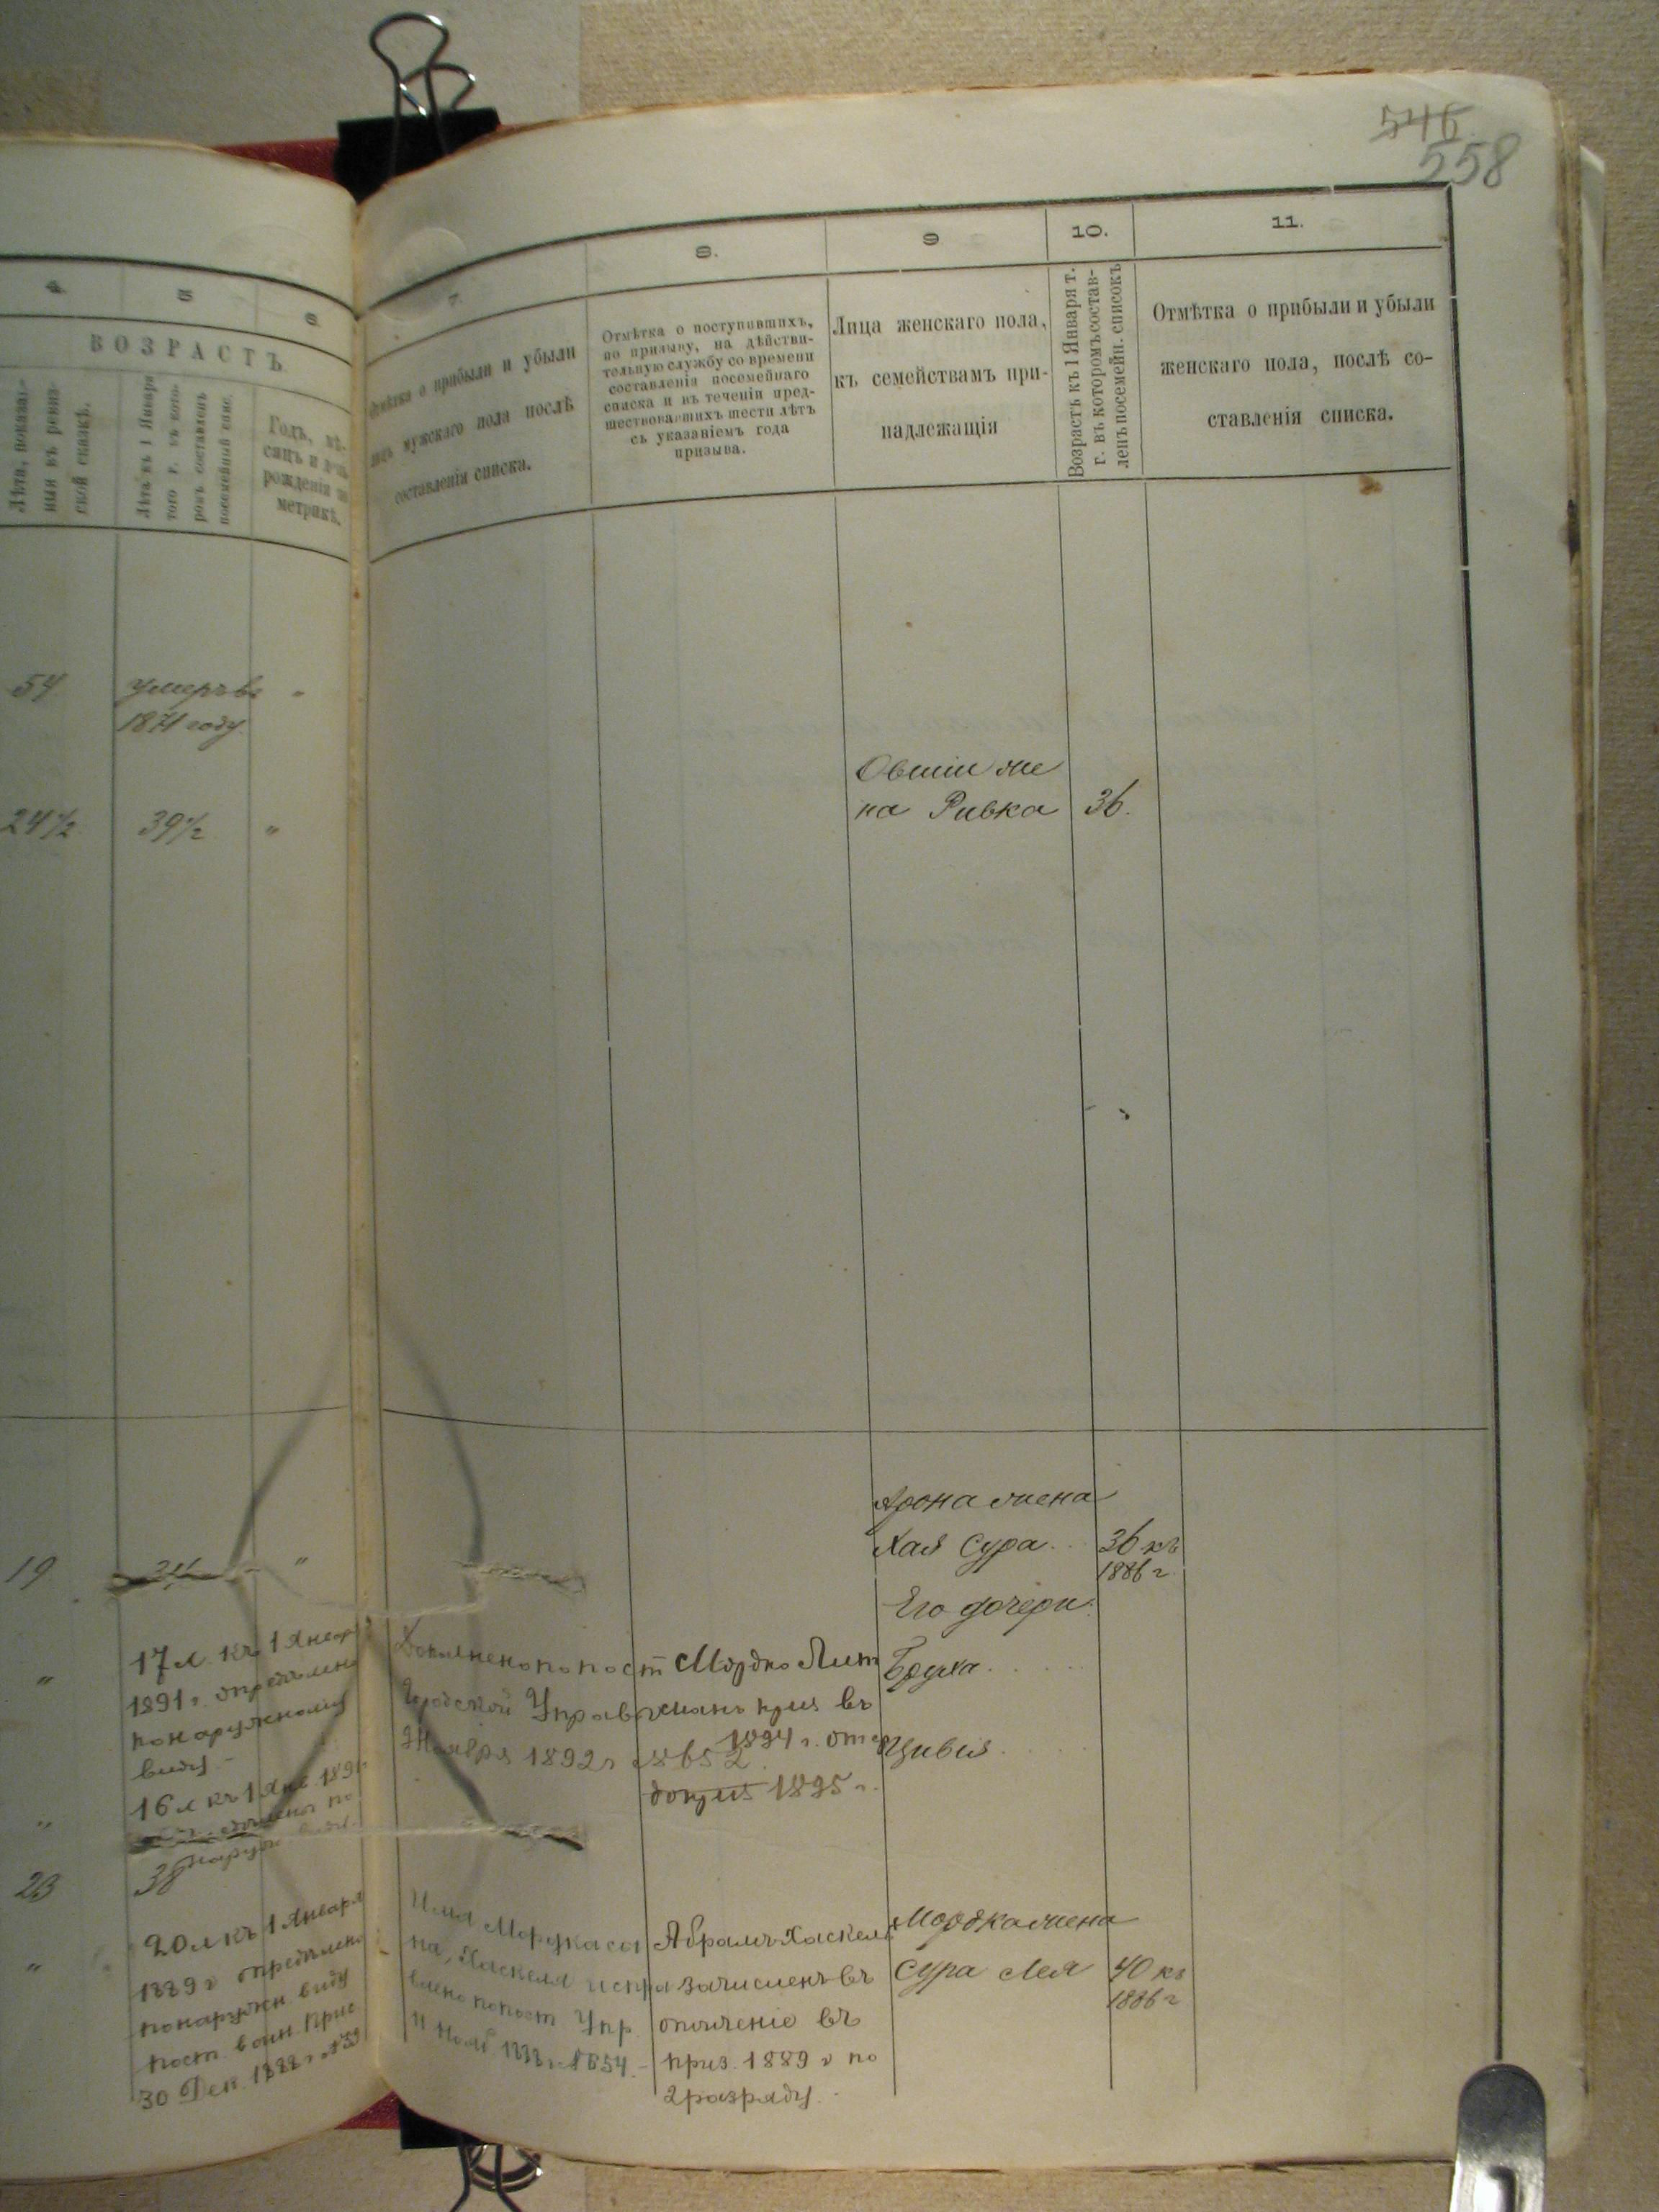 546
558
4.
5
6
7.
8.
9
10.
11.
ВОЗРАСТЪ
Лѣта, показан-
ныя въ ревиз-
ской сказкѣ.
Лѣта къ 1 Января
того г. въ кото-
ромъ составленъ
посемейный спис.
Годъ, мѣ-
сяцъ и день
рожденія по
метрикѣ.
Отмѣтка о прибыли и убыли
лицъ мужскаго пола послѣ
составленія списка.
Отмѣтка о поступившихъ,
по призыву, на дѣйстви-
тельную службу со времени
составленія посемейнаго
списка и въ теченіи пред-
шествовавшихъ шести лѣтъ
съ указаніемъ года
призыва.
Лица женскаго пола,
къ семействамъ при-
надлежащія
Возрастъ къ 1 Января т.
г. въ которомъ состав-
ленъ посемейн. списокъ
Отмѣтка о прибыли и убыли
женскаго пола, послѣ со-
ставленія списка.
54
умеръ въ
1871 году
"
24 1/2
39 1/2
"
Овшіи же
на Ривка
36.
19
"
Арона жена
Хая Сура
36 къ
1886 г
Его дочери:
Бруха
Цивія
"
17 л. къ 1 Январ
1891 г. опредѣлено
по наружному
виду -
"
16 л къ 1 Янв. 189
по
наруж виду
Дополнено по пост
Городской Управ
Ноября 1892 г 8652
Мордко Лит
манъ приз въ
1894 г. отс
до приз 1895 г.
23
38
"
20 л къ 1 Января
1889 г опредѣлено
по наружн виду
пост воин. Прис
30 Дек. 1888 г № 39
Имя Мордка сы
на, Хаскеля испра
влено по пост Упр
11 Нояб 1888 г № 654 -
Абрамъ Хаскель
зачисленъ въ
ополченіе въ
приз. 1889 г по
2 разряду.
Мордка жена
Сура Лея
40 къ
1886 г